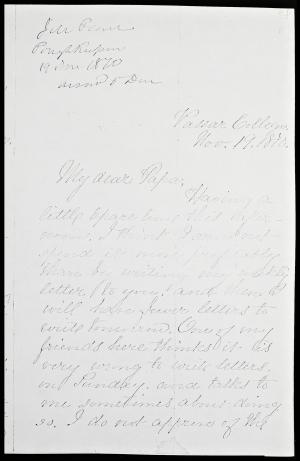 Poughkeepsie
19 Nov 1870
Vassar College,
Nov. 19, 1870.
My dear Papa,
Having a
little spare time this after-
noon, I think I can not
spend it more profitably
than in writing my weekly
letter to you, and then I
will have fewer letters to
write tomorrow. One of my
friends here thinks it is
very wrong to write letters
on Sunday, and talks to
me sometimes about doing
so. I do not approve of the